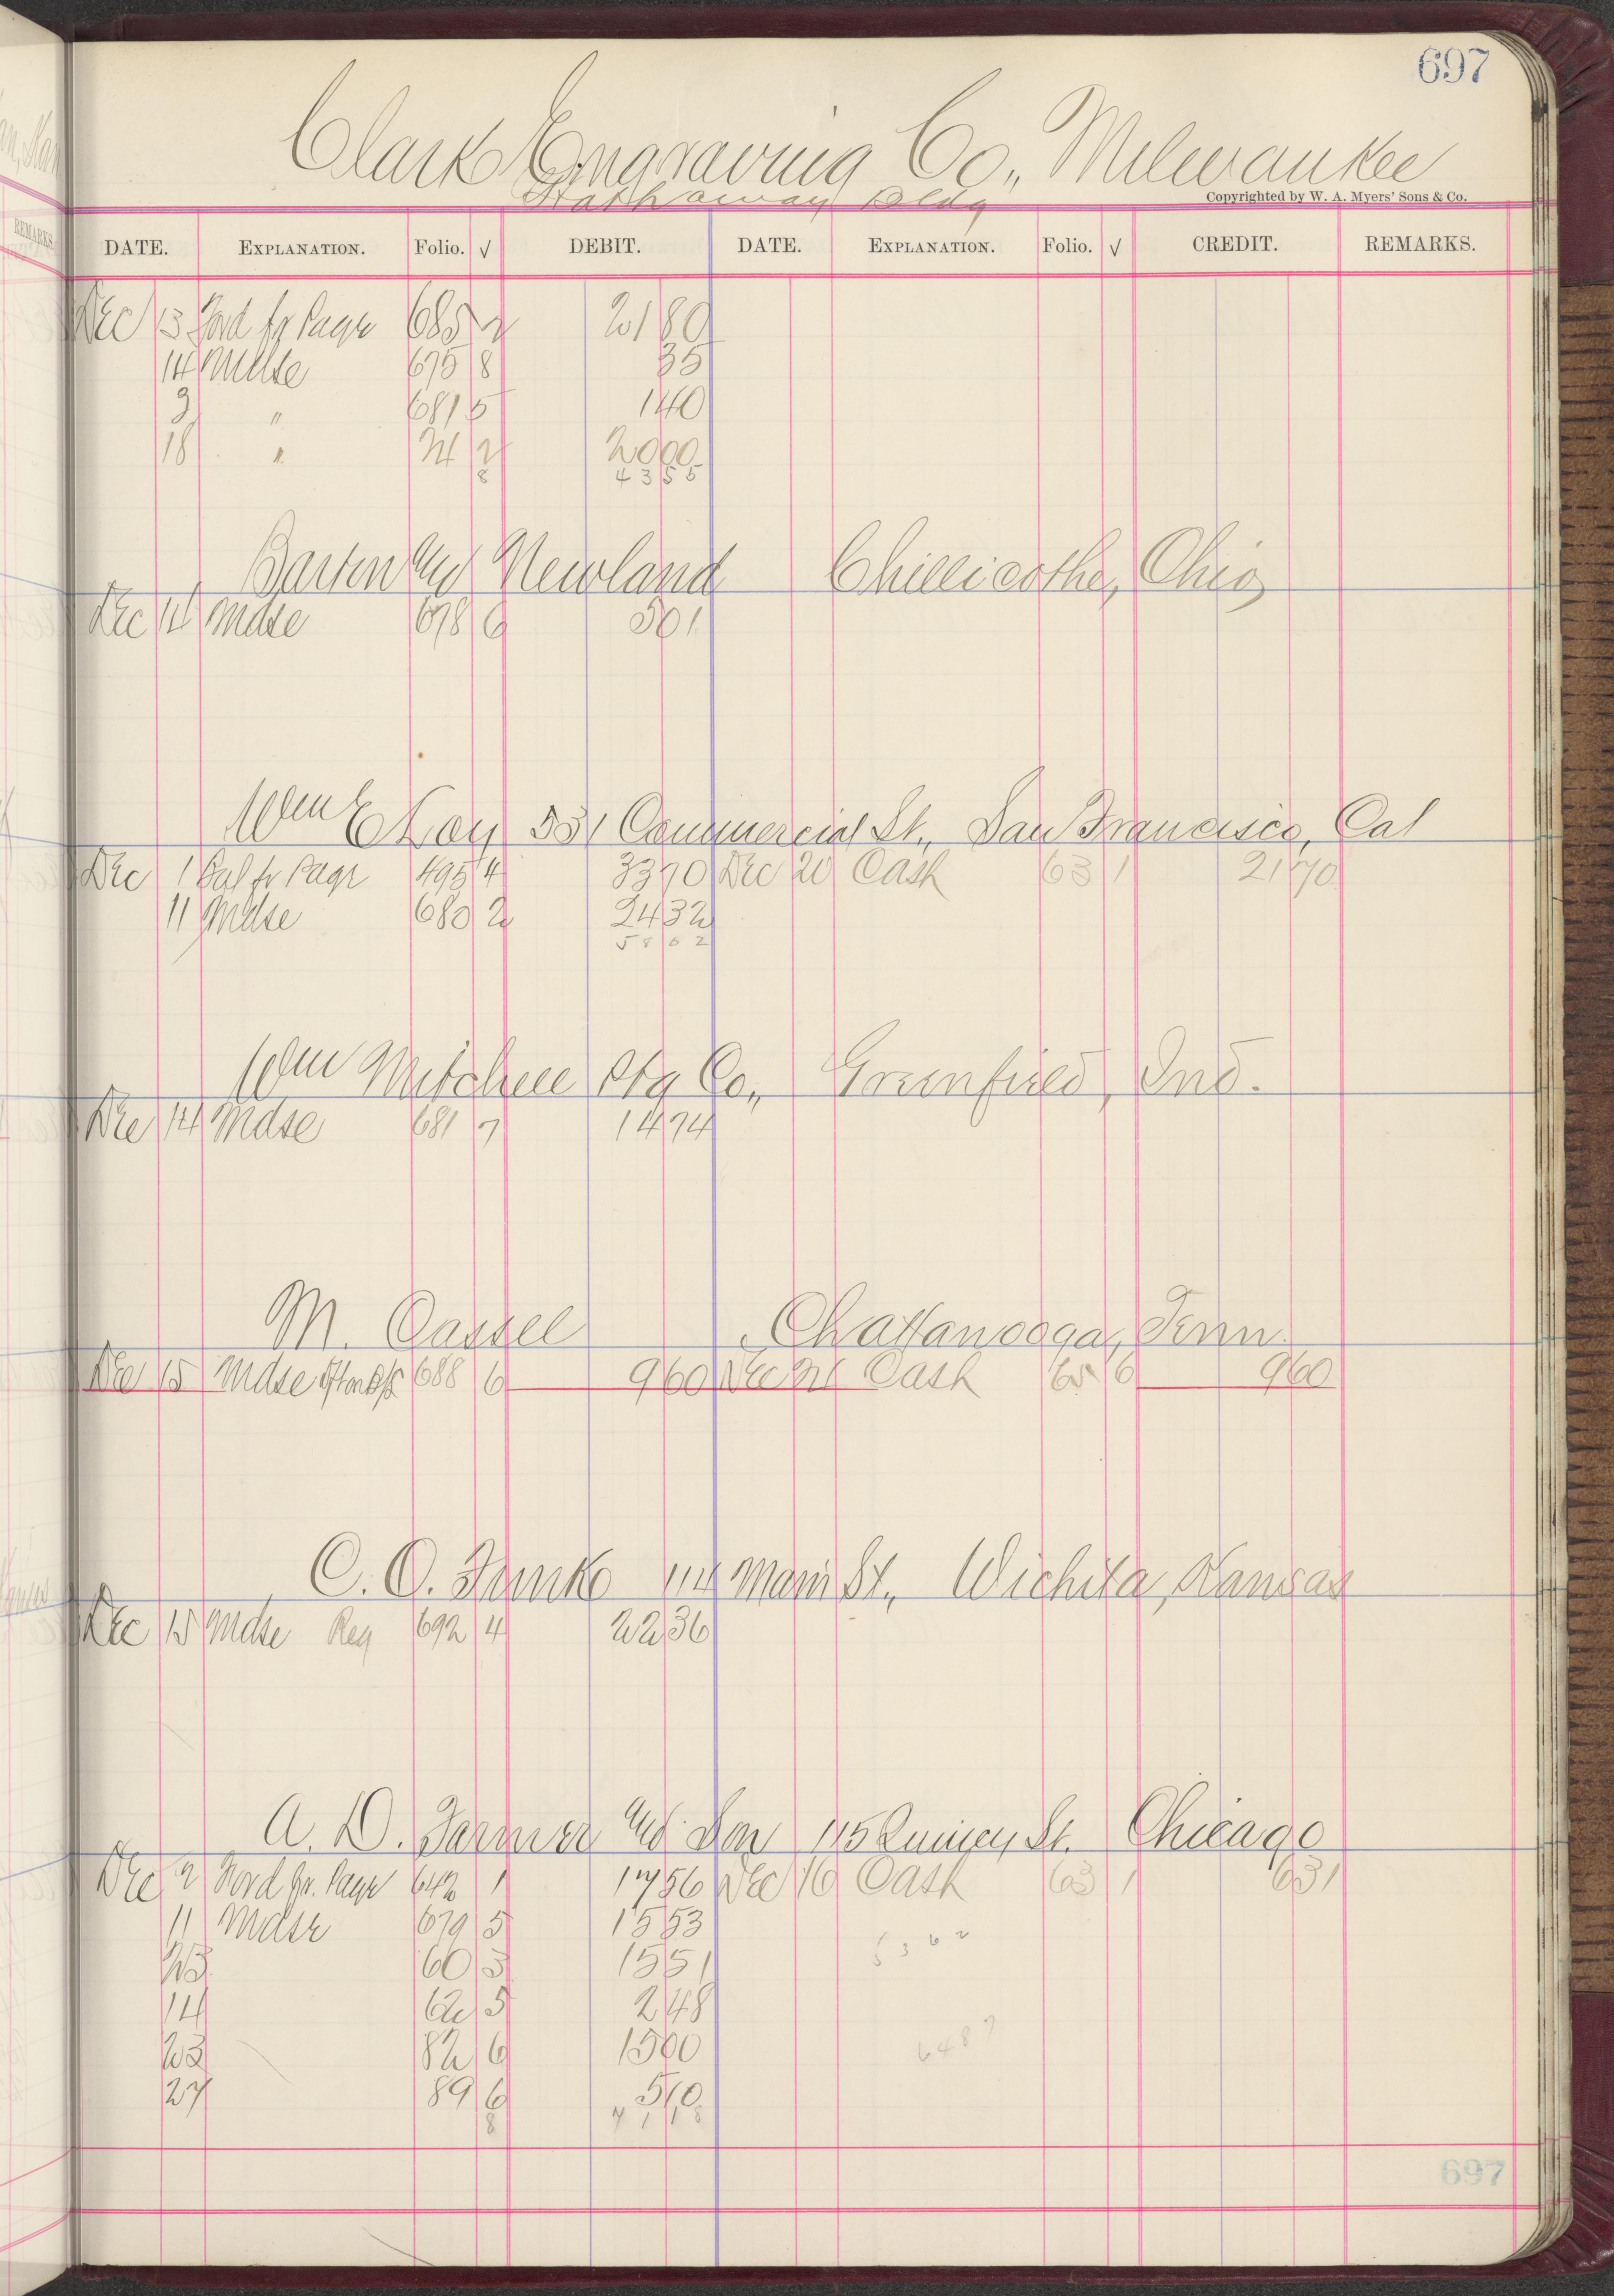 697
Clark Engraving Co., Milwaukee
Hathaway Bldg
Copyrighted by W. A. Myers' Sons & Co.
DATE. EXPLANATION. Folio. √ DEBIT. DATE. EXPLANATION. Folio. √ CREDIT. REMARKS.
Dec 13 Ford fr Page 685 2 21 80
14 Mdse 675 8 35
3 " 681 5 1 40
18 " 21 2 20 00
8 43 55
Barten and Newland Chillicothe, Ohio
Dec 14 Mdse 678 6 5 01
Wm E Loy 531 Commercial St., San Francisco, Cal
Dec 1 Bal fr Page 495 4 33 70 Dec 20 Cash 63 1 21 70
11 Mdse 680 2 24 32
58 02
Wm Mitchell Ptg Co., Greenfield, Ind.
Dec 14 Mdse 681 7 14 74
M. Cassel Chattanooga, Tenn.
Dec 15 Mdse 688 6 9 60 Dec 21 Cash 65 6 9 60
C. O. Funk 114 Main St., Wichita, Kansas
Dec 15 Mdse Reg 692 4 22 36
A. D. Farmer and Son 115 Quincy St. Chicago
Dec 2 Ford fr. Page 642 1 17 56 Dec 16 Cash 63 1 6 31
11 Mdse 679 5 15 53
60 3 15 51
14 62 5 2 48
23 82 6 15 00
27 89 6 5 10
8 71 18
64 87
697